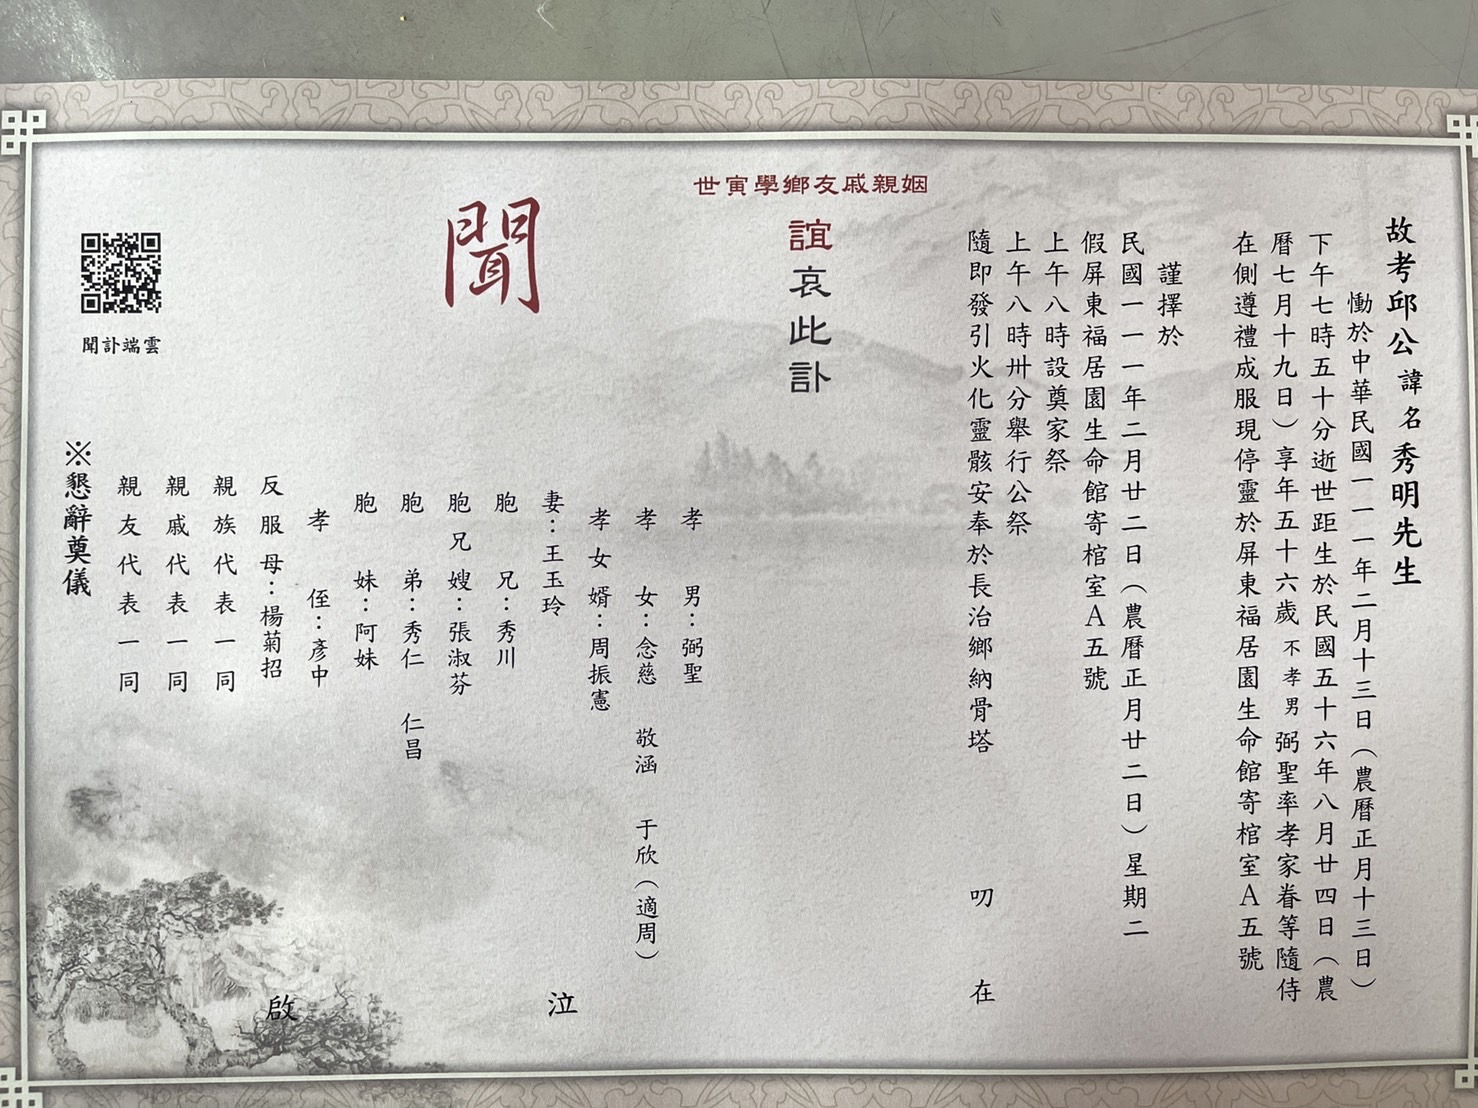 故考邱公諱名秀明先生
慟於中華民國一一一年二月十三日（農曆正月十三日）
下午七時五十分逝世距生於民國五十六年八月廿四日（農
曆七月十九日）享年五十六歲不孝男弼聖率孝家眷等隨侍
在側遵禮成服現停靈於屏東福居園生命館寄棺室A五號
謹擇於
民國一一一年二月廿二日（農曆正月廿二日）星期二
假屏東福居園生命館寄棺室A五號
上午八時設奠家祭
上午八時卅分舉行公祭
隨即發引火化靈骸安奉於長治鄉納骨塔 叨在
姻親戚友鄉學寅世
誼哀此訃
聞
孝男：弼聖
孝女：念慈 敬涵 于欣（適周）
孝女婿：周振憲
妻：王玉玲
胞兄：秀川
胞兄嫂：張淑芬
胞弟：秀仁 仁昌
胞妹：阿妹
孝侄：彥中
反服母：楊菊招
親族代表一同
親戚代表一同
親友代表一同
泣
啟
※懇辭奠儀
雲端訃聞